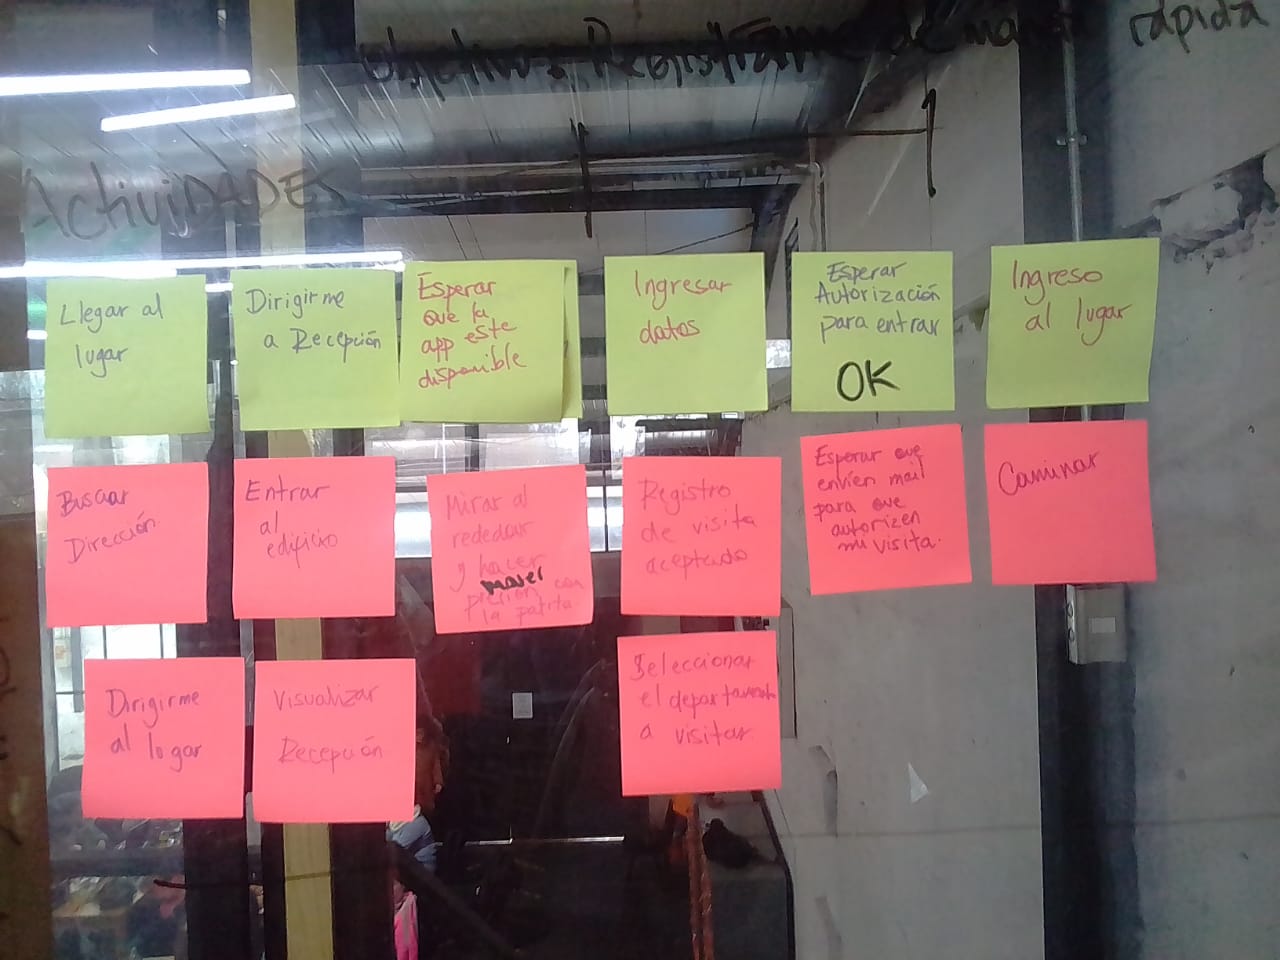 objetivo: Registrarme de manera rápida
ActiviDADES
Llegar al
lugar
Dirigirme
a Recepción
Esperar
que la
app este
disponible
Ingresar
datos
Esperar
Autorización
para entrar
OK
Ingreso
al lugar
Buscar
Dirección
Entrar
al
edificio
Mirar al
rededor
y hacer
mayer
presión con
la patita
Registro
de visita
aceptado
Esperar que
envíen mail
para que
autorizen
mi visita.
Caminar
Dirigirme
al lugar
Visualizar
Recepción
Seleccionar
el departamento
a visitar